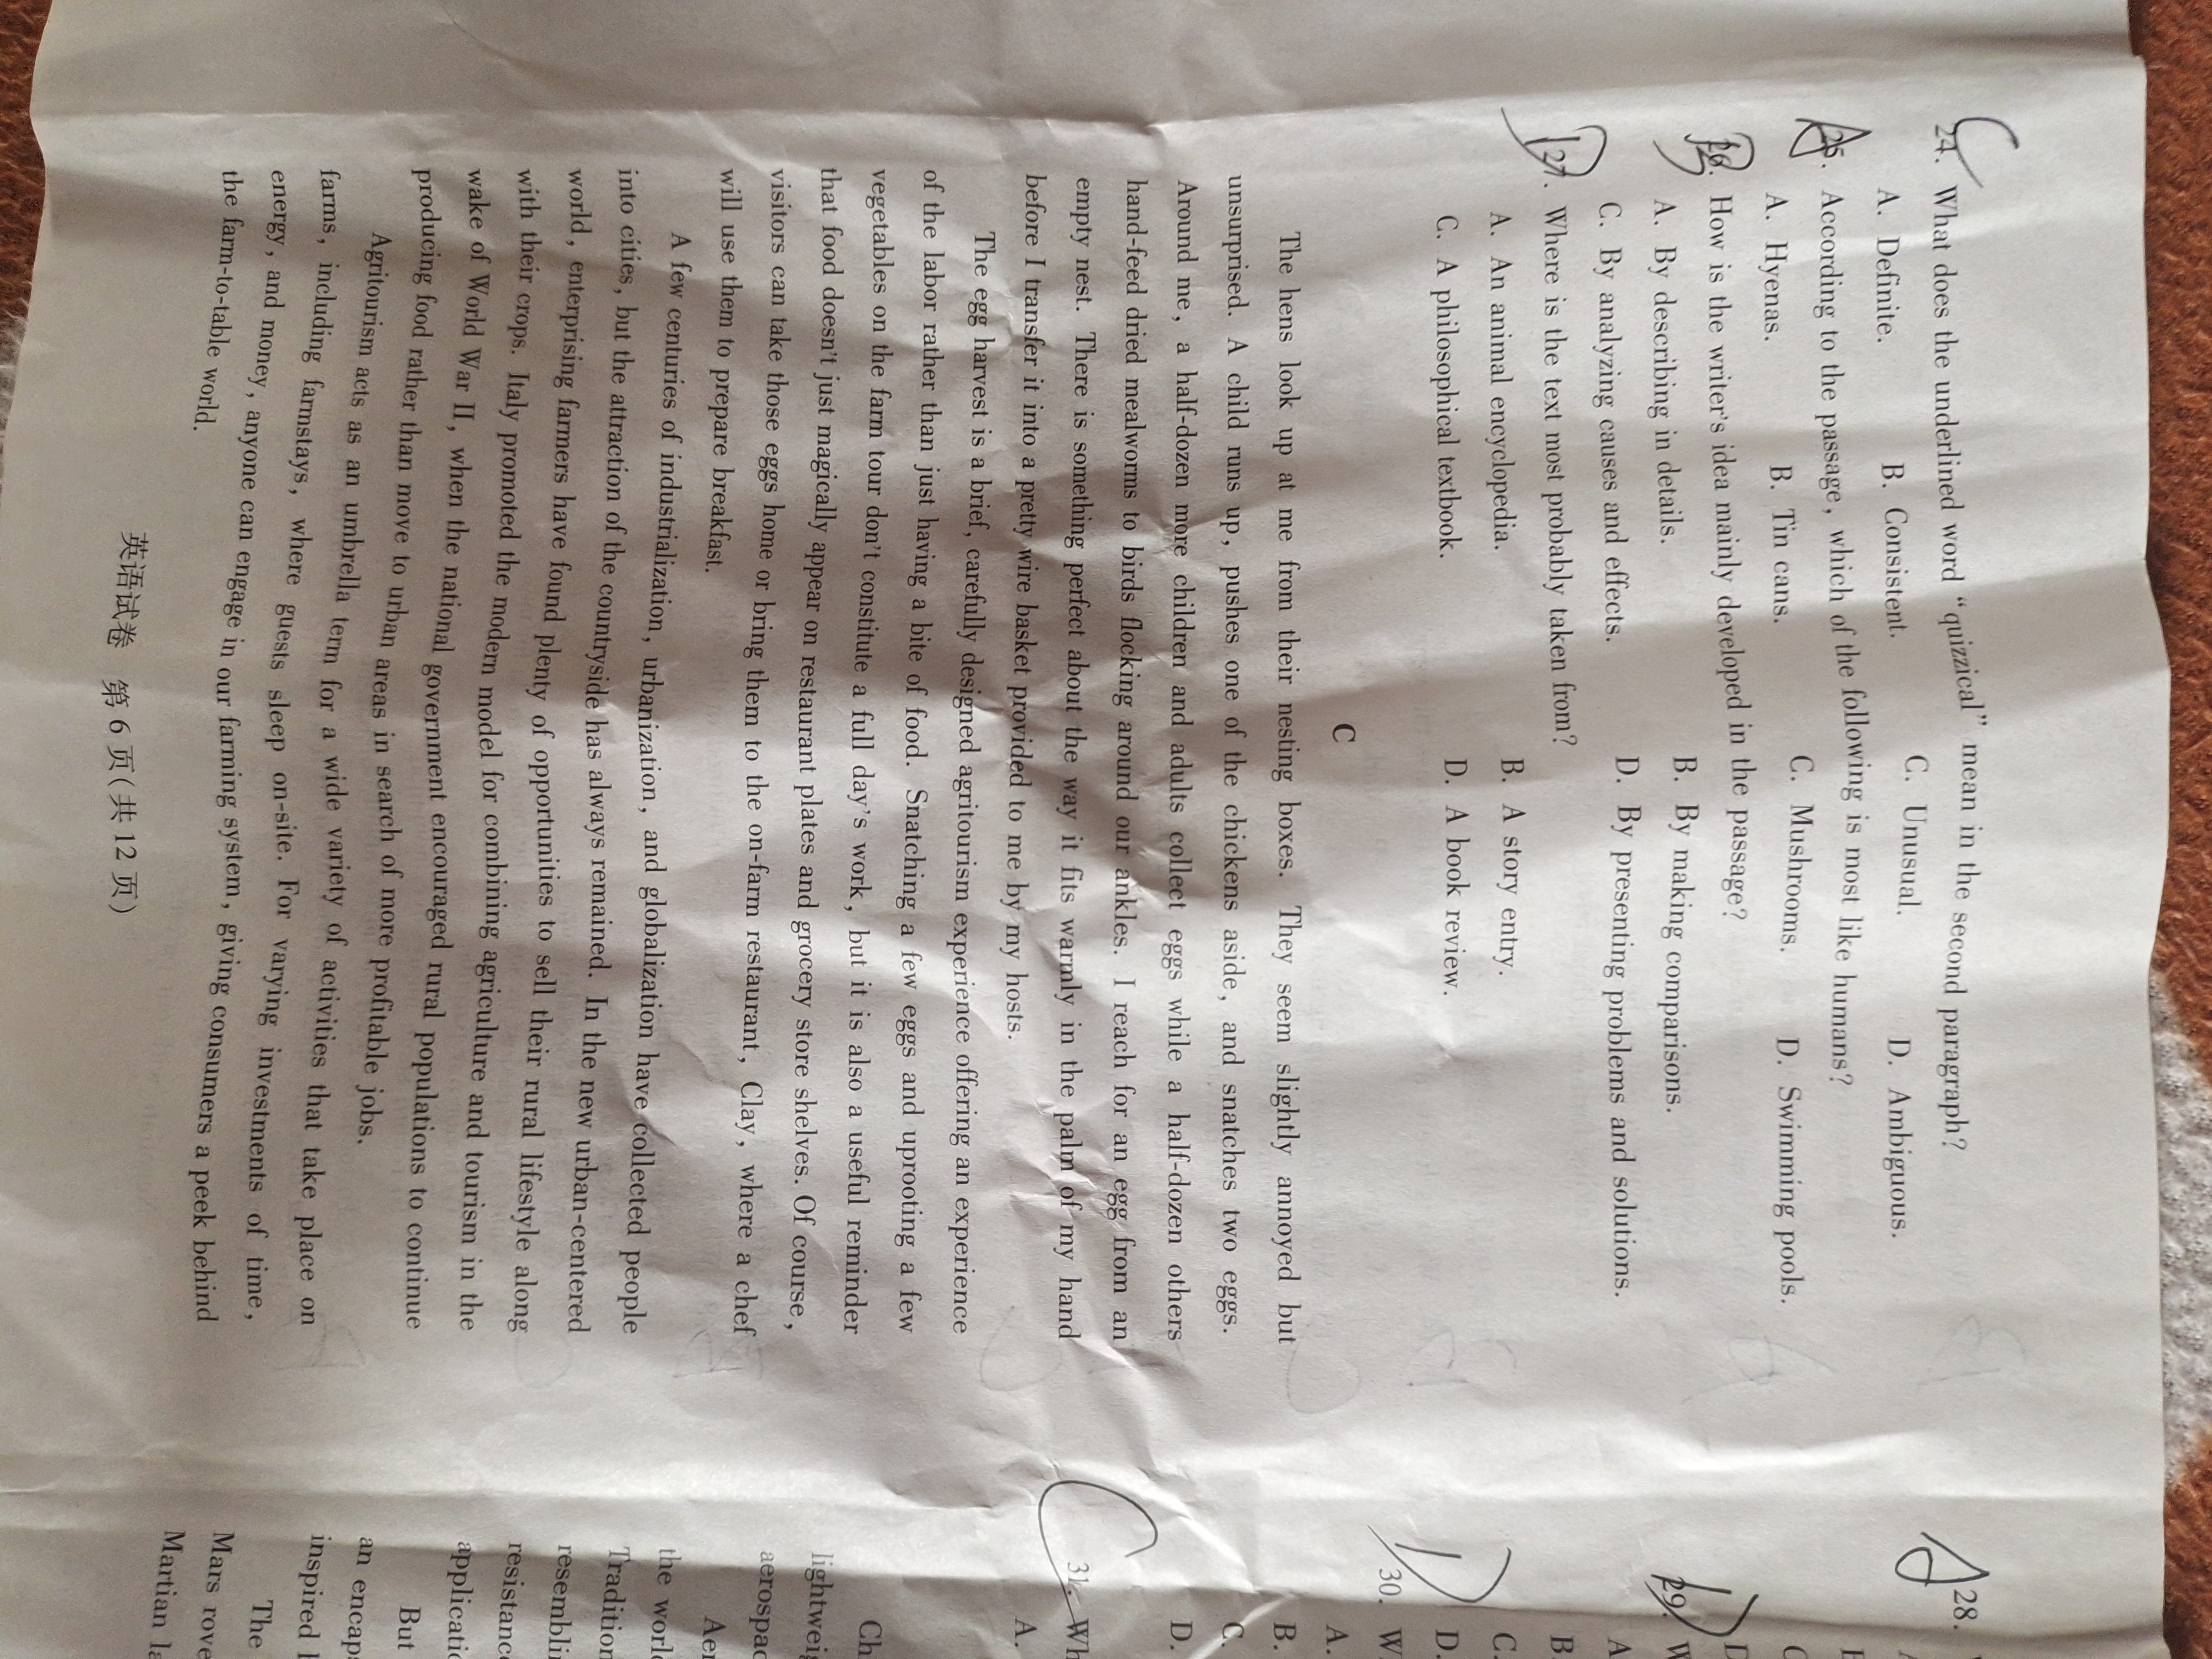 C
24. What does the underlined word “quizzical” mean in the second paragraph?
A. Definite. B. Consistent. C. Unusual. D. Ambiguous.
A
25. According to the passage, which of the following is most like humans?
A. Hyenas. B. Tin cans. C. Mushrooms. D. Swimming pools.
B
26. How is the writer's idea mainly developed in the passage?
A. By describing in details. B. By making comparisons.
C. By analyzing causes and effects. D. By presenting problems and solutions.
D
27. Where is the text most probably taken from?
A. An animal encyclopedia. B. A story entry.
C. A philosophical textbook. D. A book review.
C
The hens look up at me from their nesting boxes. They seem slightly annoyed but
unsurprised. A child runs up, pushes one of the chickens aside, and snatches two eggs.
Around me, a half-dozen more children and adults collect eggs while a half-dozen others
hand-feed dried mealworms to birds flocking around our ankles. I reach for an egg from an
empty nest. There is something perfect about the way it fits warmly in the palm of my hand
before I transfer it into a pretty wire basket provided to me by my hosts.
The egg harvest is a brief, carefully designed agritourism experience offering an experience
of the labor rather than just having a bite of food. Snatching a few eggs and uprooting a few
vegetables on the farm tour don't constitute a full day's work, but it is also a useful reminder
that food doesn't just magically appear on restaurant plates and grocery store shelves. Of course,
visitors can take those eggs home or bring them to the on-farm restaurant, Clay, where a chef
will use them to prepare breakfast.
A few centuries of industrialization, urbanization, and globalization have collected people
into cities, but the attraction of the countryside has always remained. In the new urban-centered
world, enterprising farmers have found plenty of opportunities to sell their rural lifestyle along
with their crops. Italy promoted the modern model for combining agriculture and tourism in the
wake of World War II, when the national government encouraged rural populations to continue
producing food rather than move to urban areas in search of more profitable jobs.
Agritourism acts as an umbrella term for a wide variety of activities that take place on
farms, including farmstays, where guests sleep on-site. For varying investments of time,
energy, and money, anyone can engage in our farming system, giving consumers a peek behind
the farm-to-table world.
英语试卷 第 6 页(共 12 页)
A
28.
D
29. W
A
B.
C.
D.
D
30. W
A.
B.
C.
D.
C
31. Wh
A.
Ch
lightweig
aerospac
Aer
the worl
Tradition
resembli
resistanc
applicatio
But
an encaps
inspired
The
Mars rove
Martian la